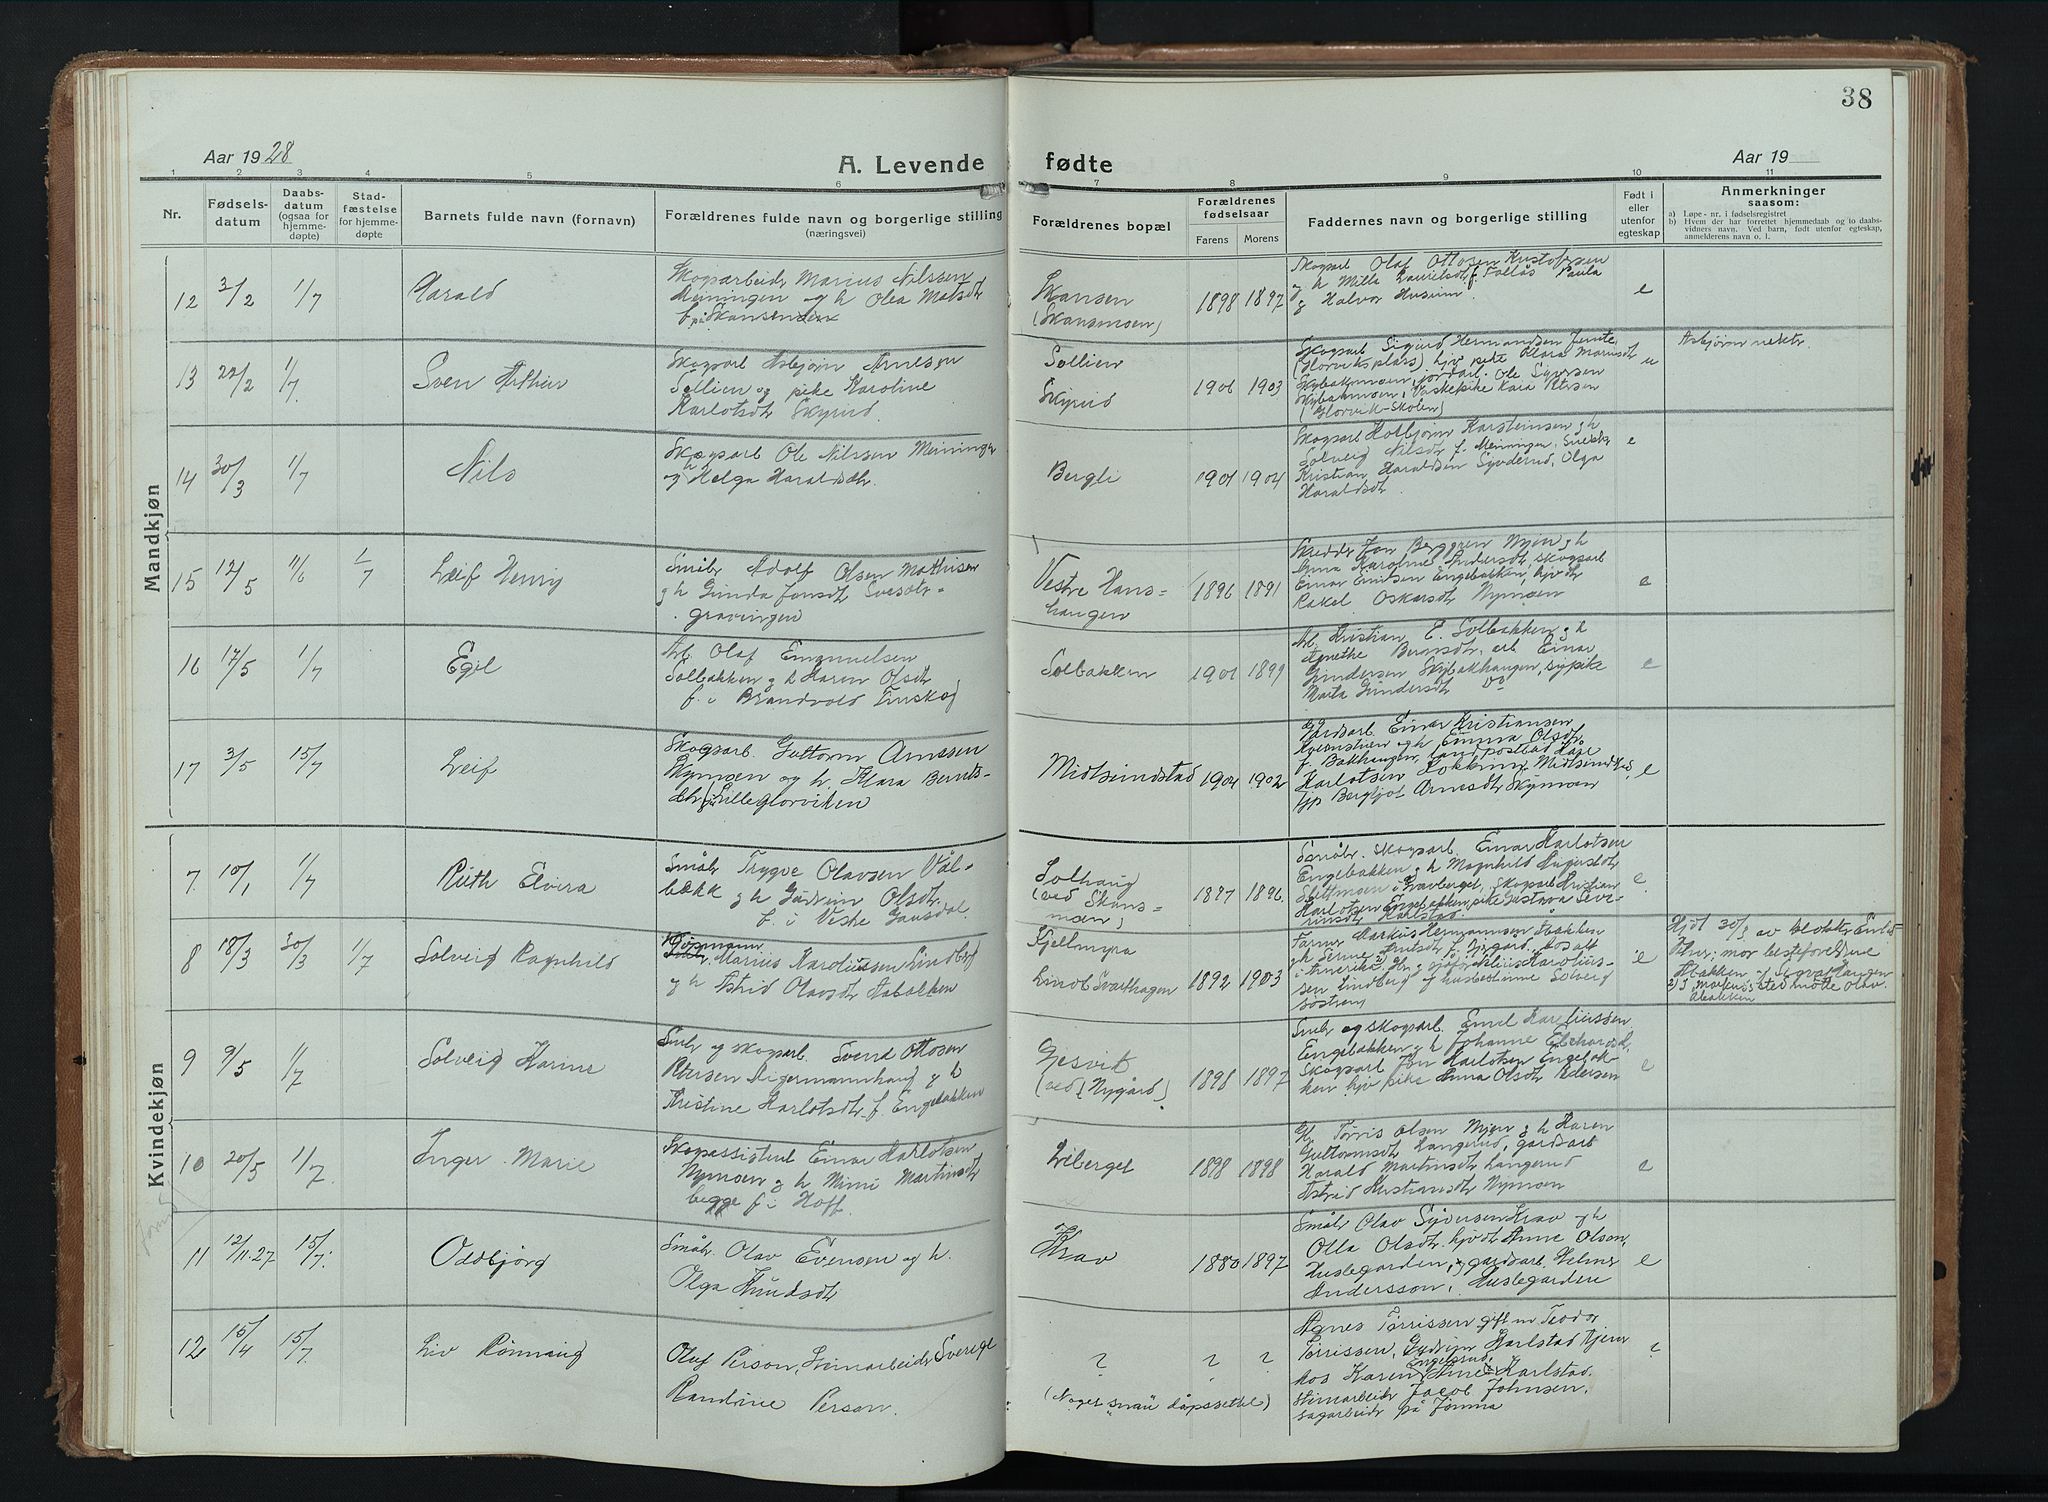 38
Aar 1928
A. Levende
fødte
Aar 19
1 2 3 4 5 6 7 8 9 10 11
Nr.
Fødsels-
datum
Daabs-
datum
(ogsaa for
hjemme-
døpte)
Stad-
fæstelse
for hjemme-
døpte
Barnets fulde navn (fornavn)
Forældrenes fulde navn og borgerlige stilling
(næringsvei)
Forældrenes bopæl
Forældrenes
fødselsaar
Farens
Morens
Faddernes navn og borgerlige stilling
Født i
eller
utenfor
egteskap
Anmerkninger
saasom:
a) Løpe-nr. i fødselsregistret
b) Hvem der har forrettet hjemmedaab og to daabs-
vidners navn. Ved barn, født utenfor egteskap,
anmelderens navn o. l.
Mandkjøn
12 3/2 1/7 Harald
Skogsarbeider Marius Nilssen
Meiningen og h Olea Matsdtr
f. på Skansen
Skansen
(Skansmoen)
1898 1897
Skogsarb Olaf Ottosen Kristofersen
og h Milla Lauritsdtr f. Follås Paula
og Halvor Husum
e
13 22/2 1/7. Sven Arthur
Skogsarb Asbjørn Arnesen
Sollien og pike Karoline
Karlotsdtr Skyrud
Sollien
Skyrud
1906 1903
Skogsarb Sigurd Hermandsen
(Glorviksplass) hjv pike Clara Mariusdtr
Skybakmoen, jordarb. Ole Syversen
Skybakmoen, Vaskepike Kara Petersen
(Glorvik-skolen)
u
Asbjørn nekter.
14 30/3 1/7 Nils
Skogsarb Ole Nilssen Meiningen
og h Helga Haraldsdtr.
Bergli
1901 1904
Skogsarb Kolbjørn Karstensen og h
Solveig Nilsdtr f. Meiningen, Snekker
Kristian Haraldsen Synderud, Olga
Haraldsdtr
e
15 12/5 11/6 1/7 Leif Henry
Småbr Adolf Olsen Mathisen
og h Gunda Jonsdtr
gravingen
Vestre Hans-
haugen
1896 1891
Skredder Jan Berggren Nyen og h
Anna Karoline Andersdtr, skogsarb
Einar Emilsen Engebakken, hjv dtr
Rakel Oskarsdtr Nymoen
e
16 17/5 1/7 Egil
Arb. Olaf Emanuelsen
Solbakken og h Karen Olsdtr
f. i Brandvold Finskog
Solbakken
1901 1899
Arb Kristian E. Solbakken og h
Agnethe Berntsdtr, arb Einar
Gundersen Skybakhaugen, sypike
Marta Gundersdtr
e
17 3/5 15/7 Leif
Skogsarb. Guttorm Arnesen
Nymoen og h. Klara Bernts-
dtr f. Lilleglorviken
Midtsundstad
1904 1902
Gårdsarb. Einar Kristiansen
Kvernstien og h, Emma Olsdtr
f. Bakhaugen, landpostbud Kåre
Karlotsen Midtsundstad,
tjp Bergljot Arnesdtr Skymoen
e
Kvindekjøn
7 10/1 1/7 Ruth Elvira
Småbr Trygve Olavsen Vål-
bekk og h Gudrun Olsdtr
f. i Vestre Gausdal.
Solhaug
(ved Skans-
moen)
1897 1896.
Småbr. skogsarb. Einar Karlotsen
Engebakken og h Magnhild Augustdtr
Slettmoen i Gravberget, skogsarb Kristian
Karlotsen Engebakken, pike Gustava Seve-
rinsdtr Karlstad.
e
8 18/3 30/3 1/7 Solveig Ragnhild
Kjøpmann
Marius Karoliussen Lindberg
og h Astrid Olavsdtr Aabakken
Kjellmyra
Lindb. Svarthagen
1892 1903
Farmer Markus Hermannsen Aabakken
og h Serine Knutsdtr f. Nygård, bosatt
i Amerika 2) Hr. og Julius Karolius-
sen Lindberg og husbestinne Solveig
Sostrøm
e
Hjdt 30/3 av
mor besteforeldrene
Abakken
2) I morens sted møtte Olav
Abakken
9 9/5 1/7 Solveig Karine
Småbr og skogsarb. Svend Ottosen
Petersen Digermannhaug og h
Kristine Karlotsdtr f. Engebakken
Gjesvik
(ved Nygård)
1898 1897
Småbr og skogsarb. Emil Kareliussen
Engebakken og h Johanne Edvardsdtr,
Skogsarb Jon Karlotsen Engebak-
ken hjv pike Anna Olsdtr Pedersen
e
10 20/5 1/7. Inger Marie
Skogassistent Einar Karlotsen
Nymoen og h Mimi Martinsdtr
begge f. i Hoff.
Liberget
1898 1898
Gb. Tørris Olsen Nyen og h Karen
Guttormsdtr Haugerud, gårdsarb
Harald Martinsdtr Haugerud
Astrid Kristiansdtr Nymoen
e
11 12/11.27 15/7. Oddbjørg
Småbr. Olav Evensen og h.
Olga Knudsdtr
Krav
1880 1897
Småbr Olav Syversen Krav og h
Olla Olsdtr. hjv dt Anne Olsen,
Huslegarden, og gardsarb. Helmer
Anderssøn, Huslegarden
e
12 15/4 15/7. Liv Rønnaug
Oluf Person, Steinarbeider Sverige
Randine Person.
?
(Noget snau dåpssettel)
? ?
Agnes Tørrissen gift m Teodor
Tørrissen, Gudrun Karlstad tjener
hos Karen Engelsrud, Arne Karlstad.
Steinarbeider Jacob Johnsen,
sagarbeider på Jømna
?